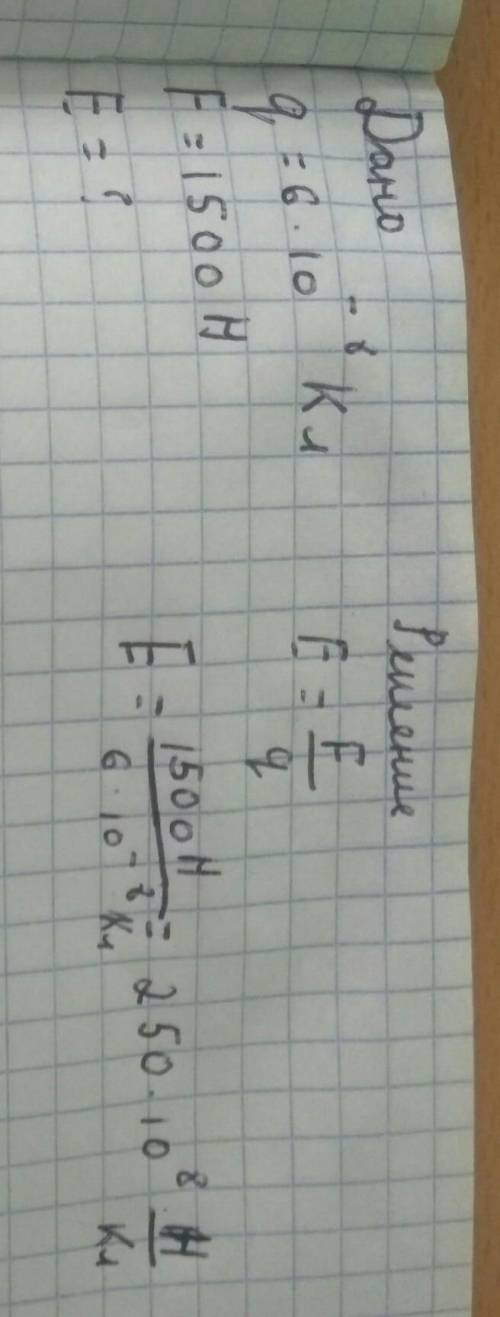 Дано
q = 6 · 10⁻⁸ Кл
F = 1500 Н
E = ?
Решение
E = F/q
E = 1500 Н / 6 · 10⁻⁸ Кл = 250 · 10⁸ Н/Кл